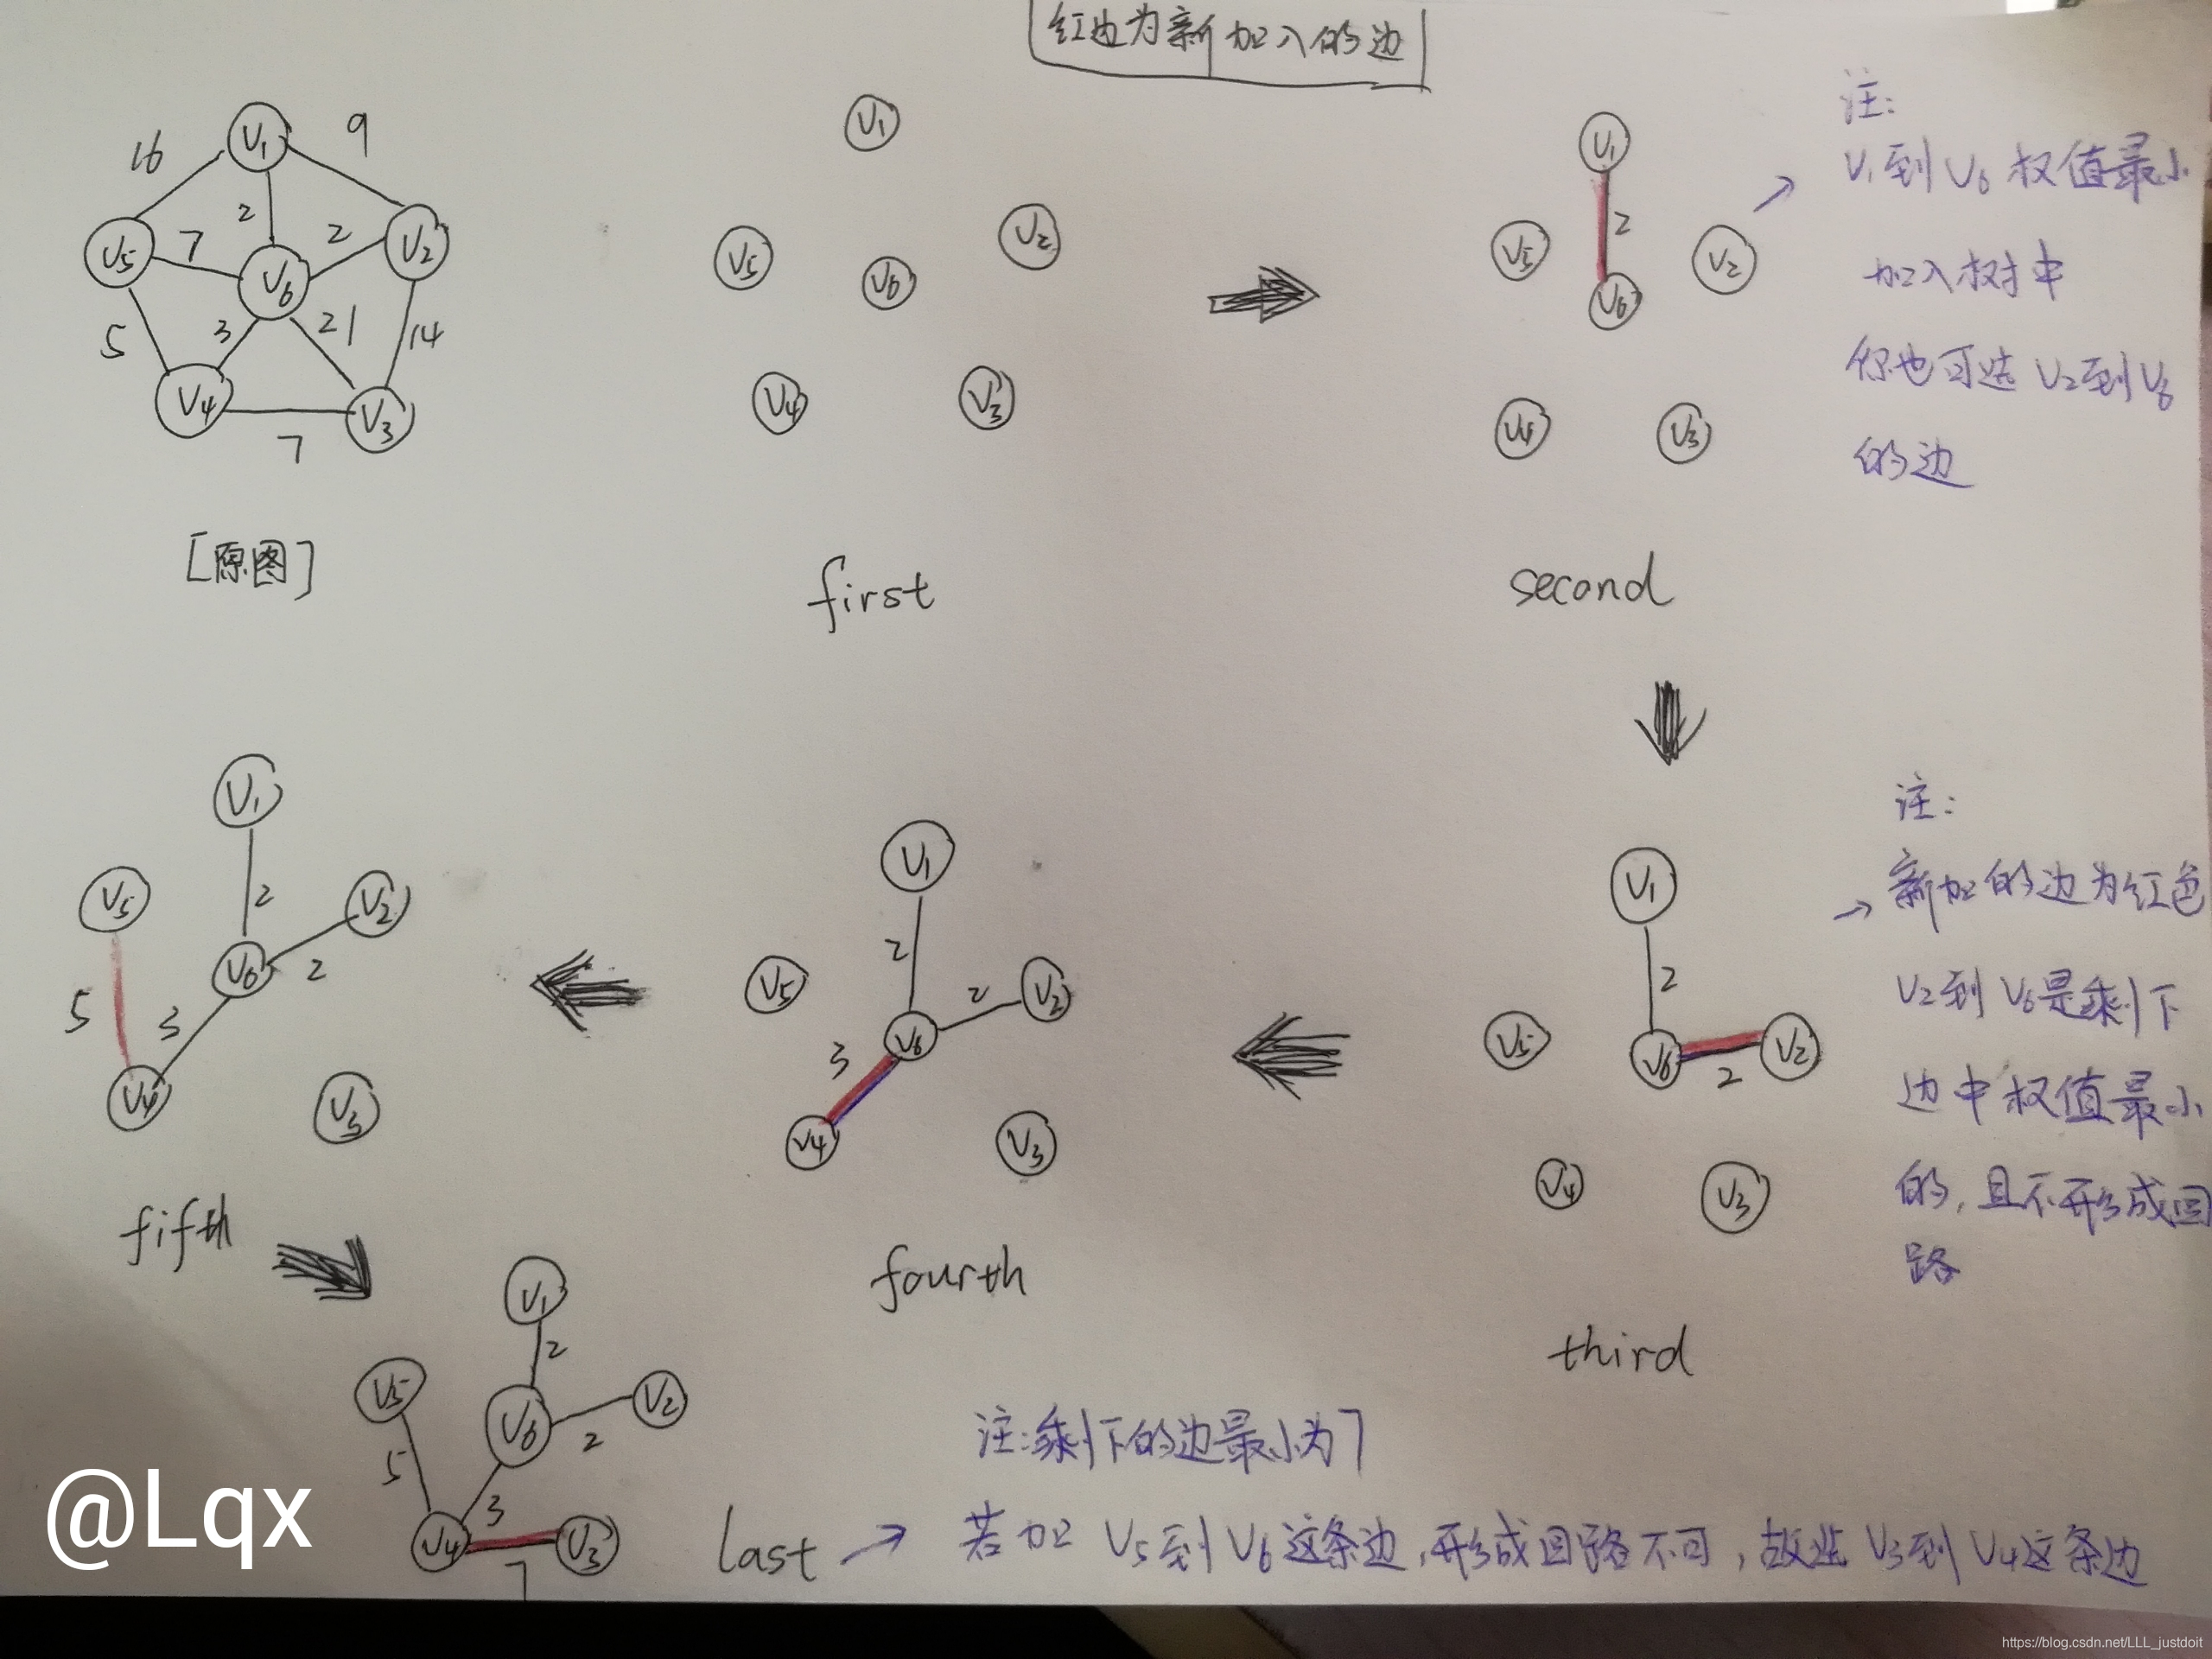 红边为新加入的边
V1
16
9
2
7
2
V5
V2
V6
5
3
21
14
V4
V3
7
[原图]
V1
V5
V2
V6
V4
V3
first
V1
2
V5
V2
V6
V4
V3
second
注:
V1到V6权值最小
加入树中
你也可选V2到V6
的边
V1
2
V5
V6
V2
2
V4
V3
third
注:
新加的边为红色
V2到V6是剩下
边中权值最小
的,且不形成回
路
V1
2
V5
2
V2
V6
3
V4
V3
fourth
V1
V5
2
V2
V6
2
5
3
V4
V3
fifth
V1
2
V5
V2
V6
2
5
3
V4
V3
7
last
注:剩下的边最小为7
若加V5到V6这条边,形成回路不可,故选V3到V4这条边
@Lqx
https://blog.csdn.net/LLL_justdoit